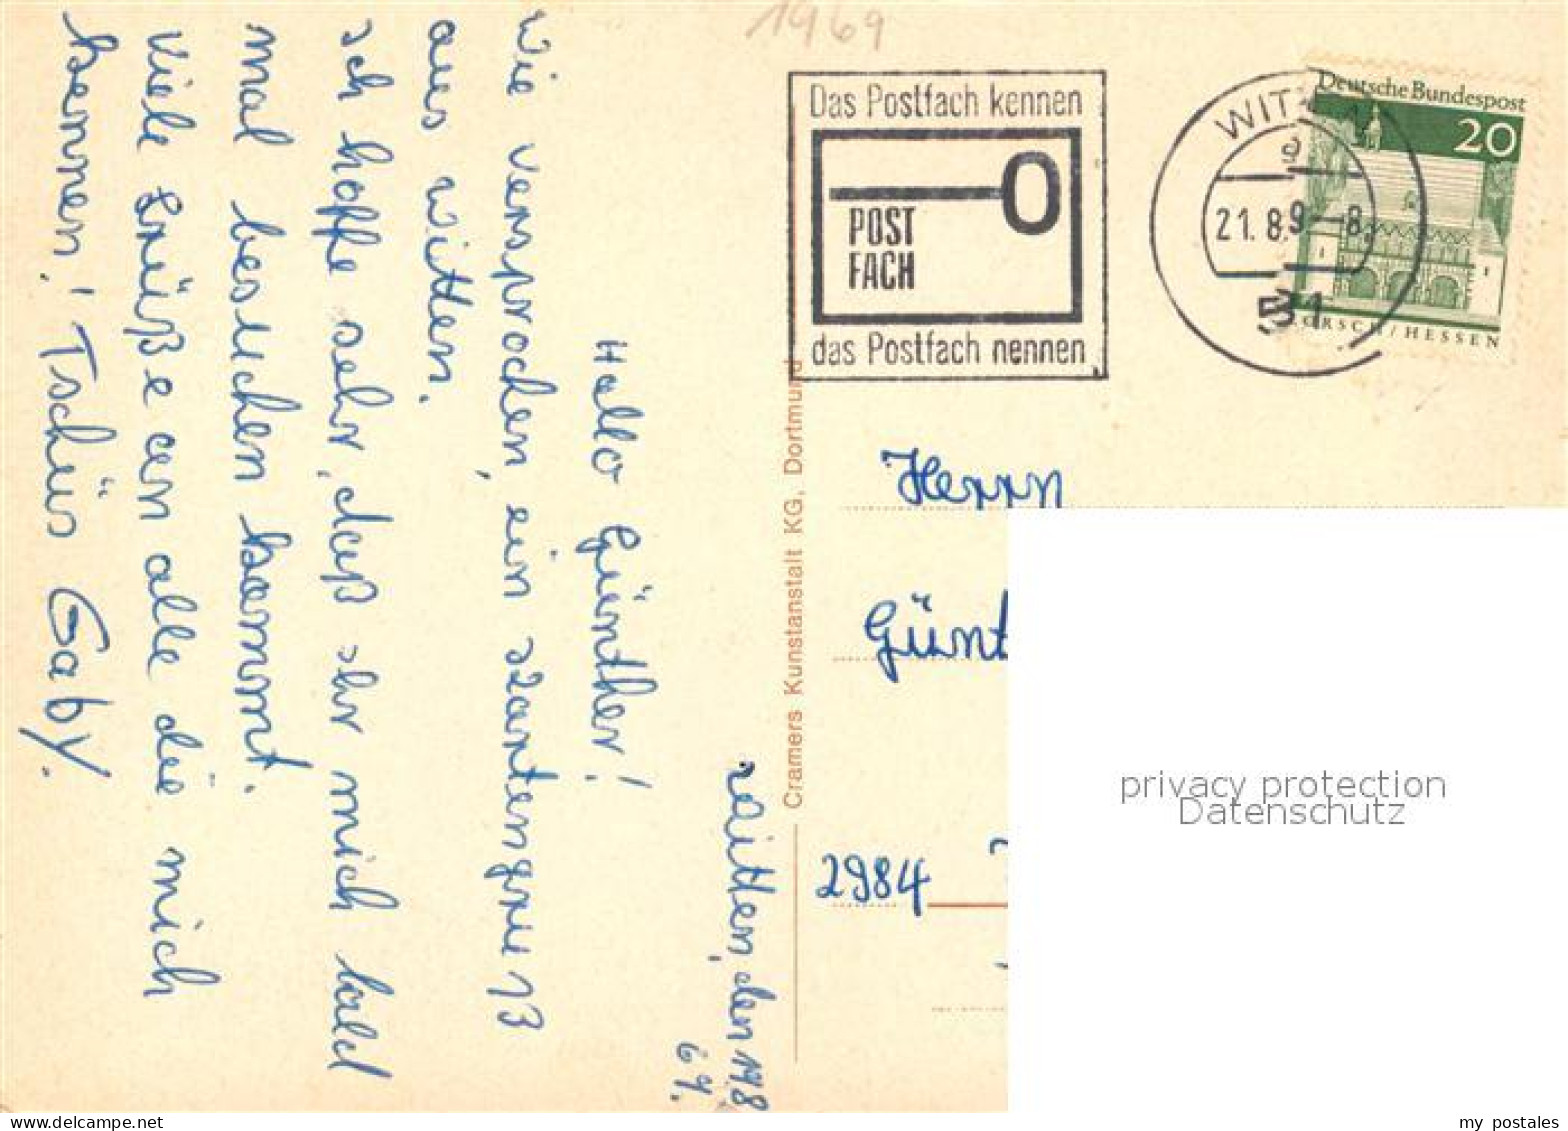 1969
Das Postfach kennen
POST
FACH
das Postfach nennen
21.8.9-8
51
Deutsche Bundespost
20
LORSCH/HESSEN
Witten, den
Hallo Günther!
Wie versprochen, ein
aus Witten.
Ich hoffe sehr, daß Ihr mich bald
mal besuchen kommt.
Viele Grüße an alle die mich
kennen! Tschüs Gaby.
Cramers Kunstanstalt KG, Dortmund
Herrn
Günt
2984
privacy protection
Datenschutz
my postales